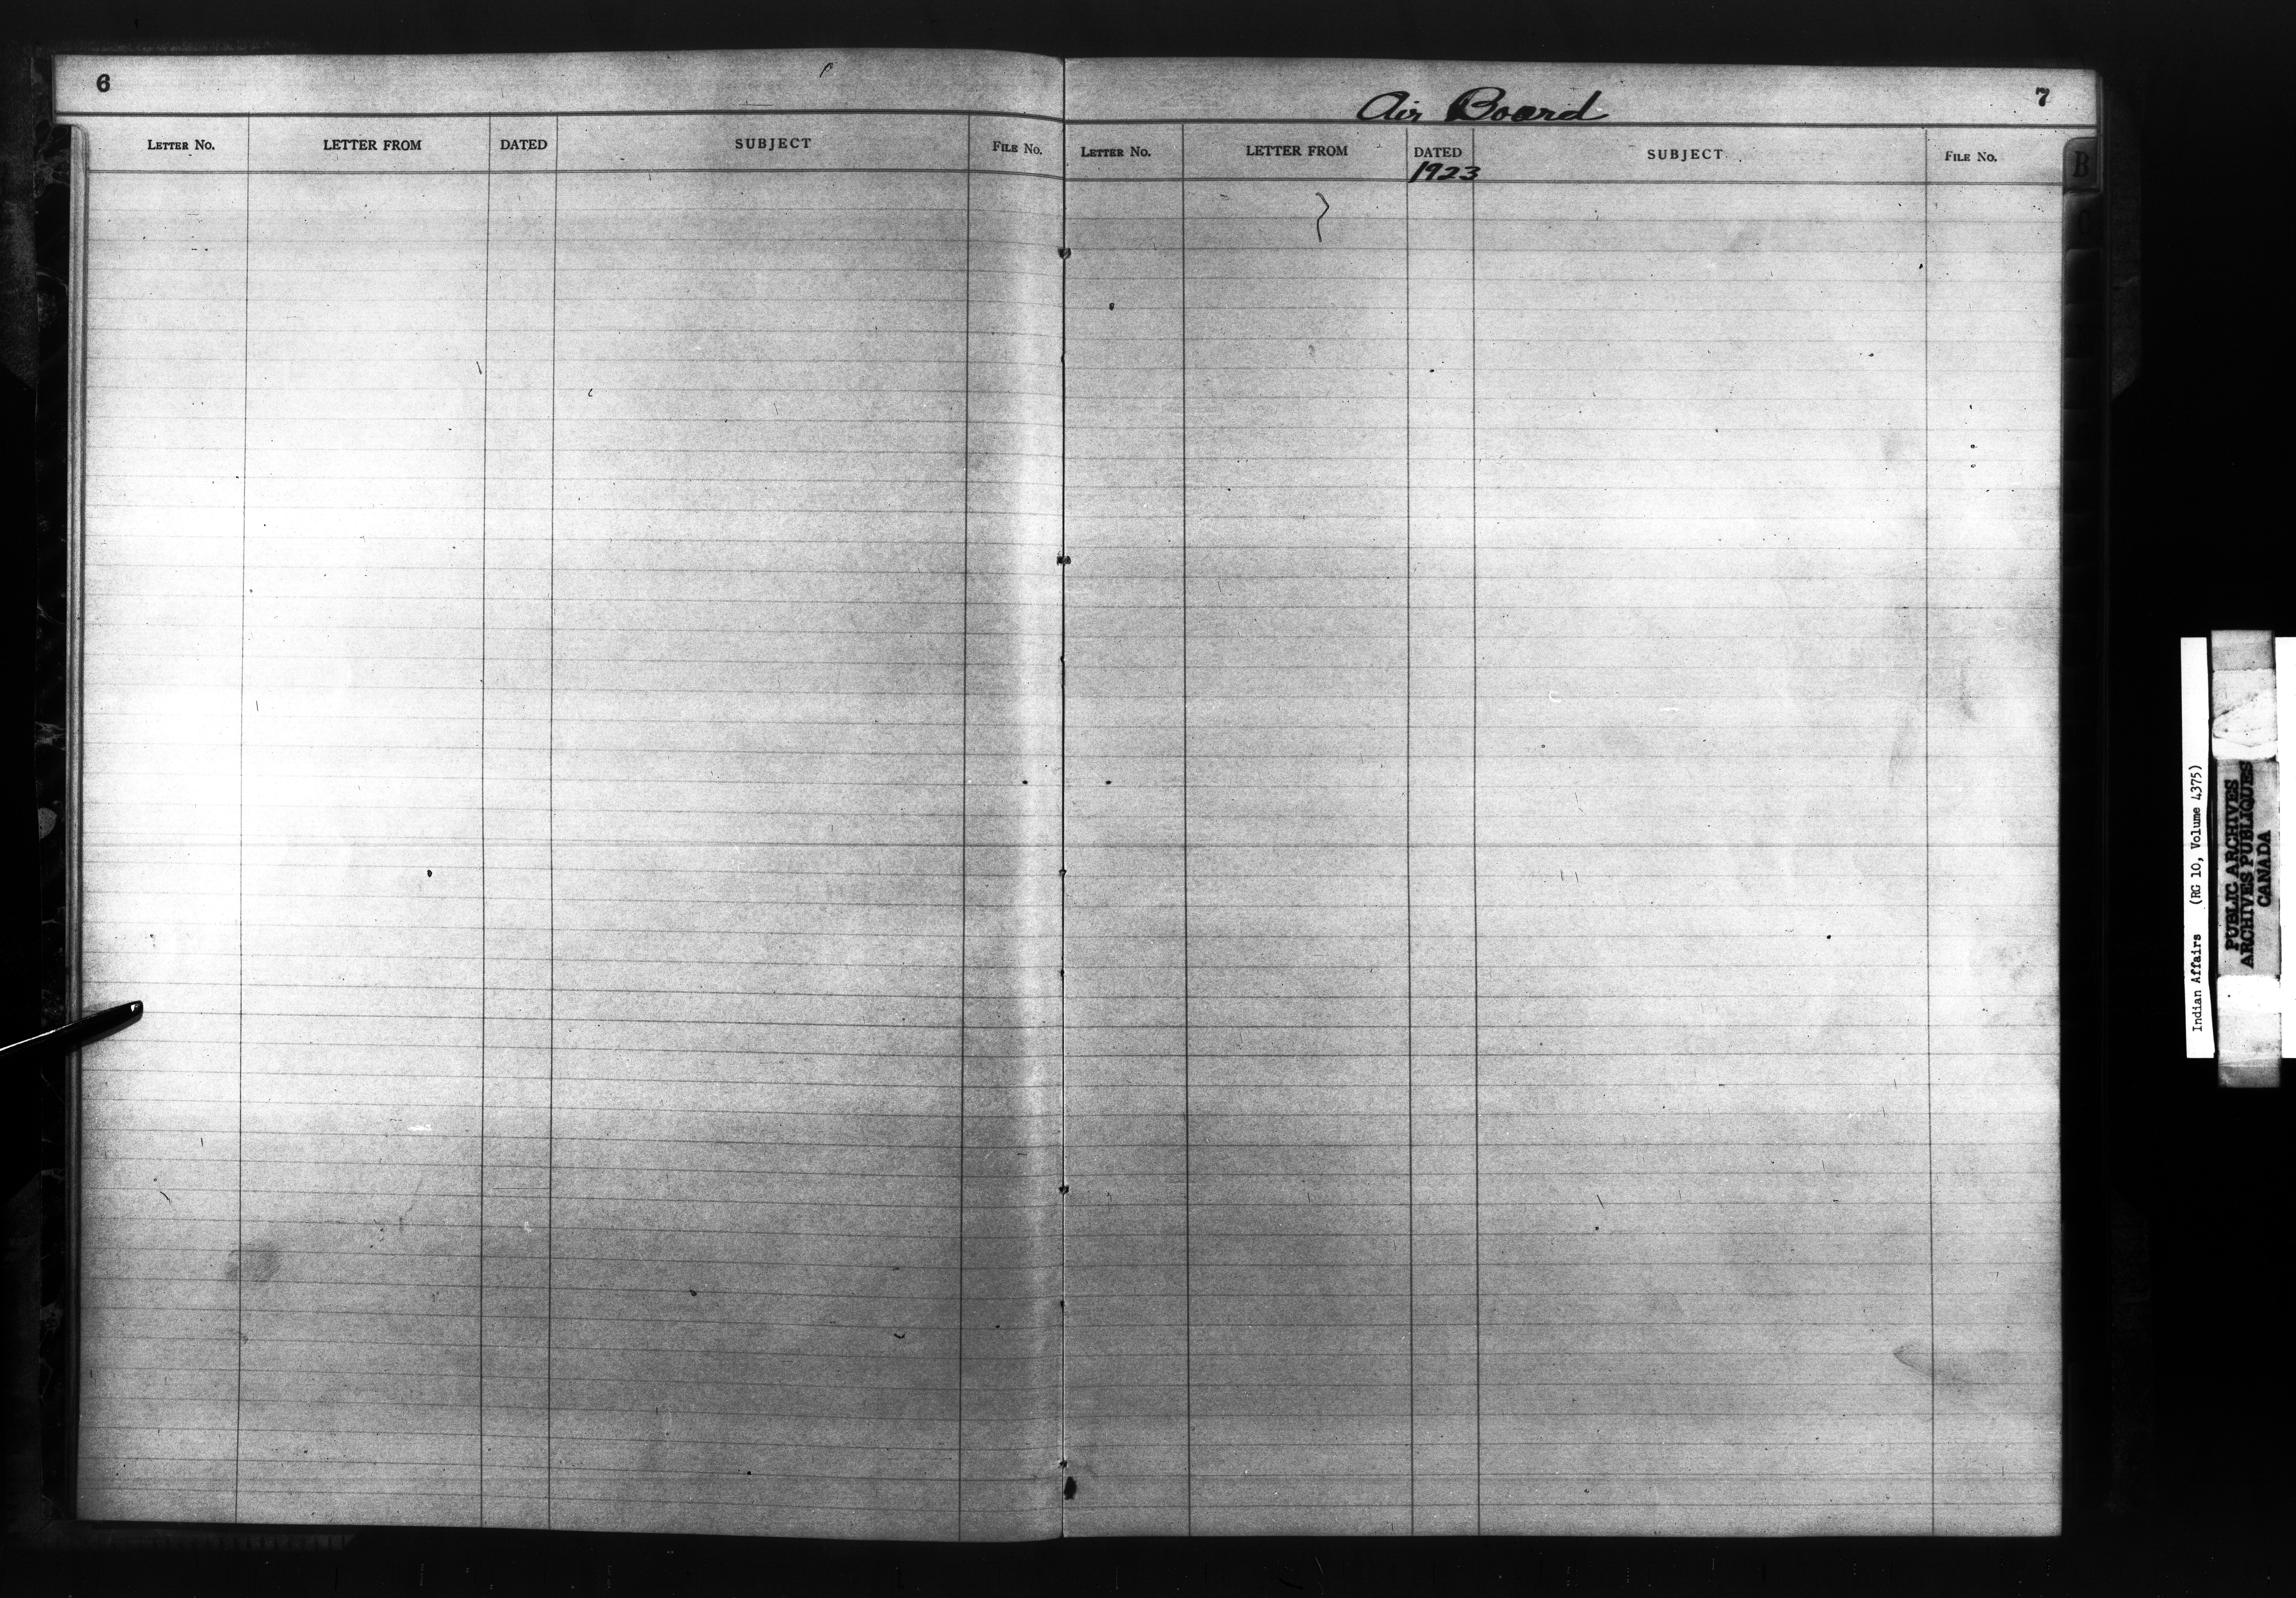 6
LETTER No. LETTER FROM DATED SUBJECT FILE No.
Air Board
7
LETTER No. LETTER FROM DATED SUBJECT FILE No.
1923
B
C
Indian Affairs (RG 10, Volume 4375)
PUBLIC ARCHIVES
ARCHIVES PUBLIQUES
CANADA